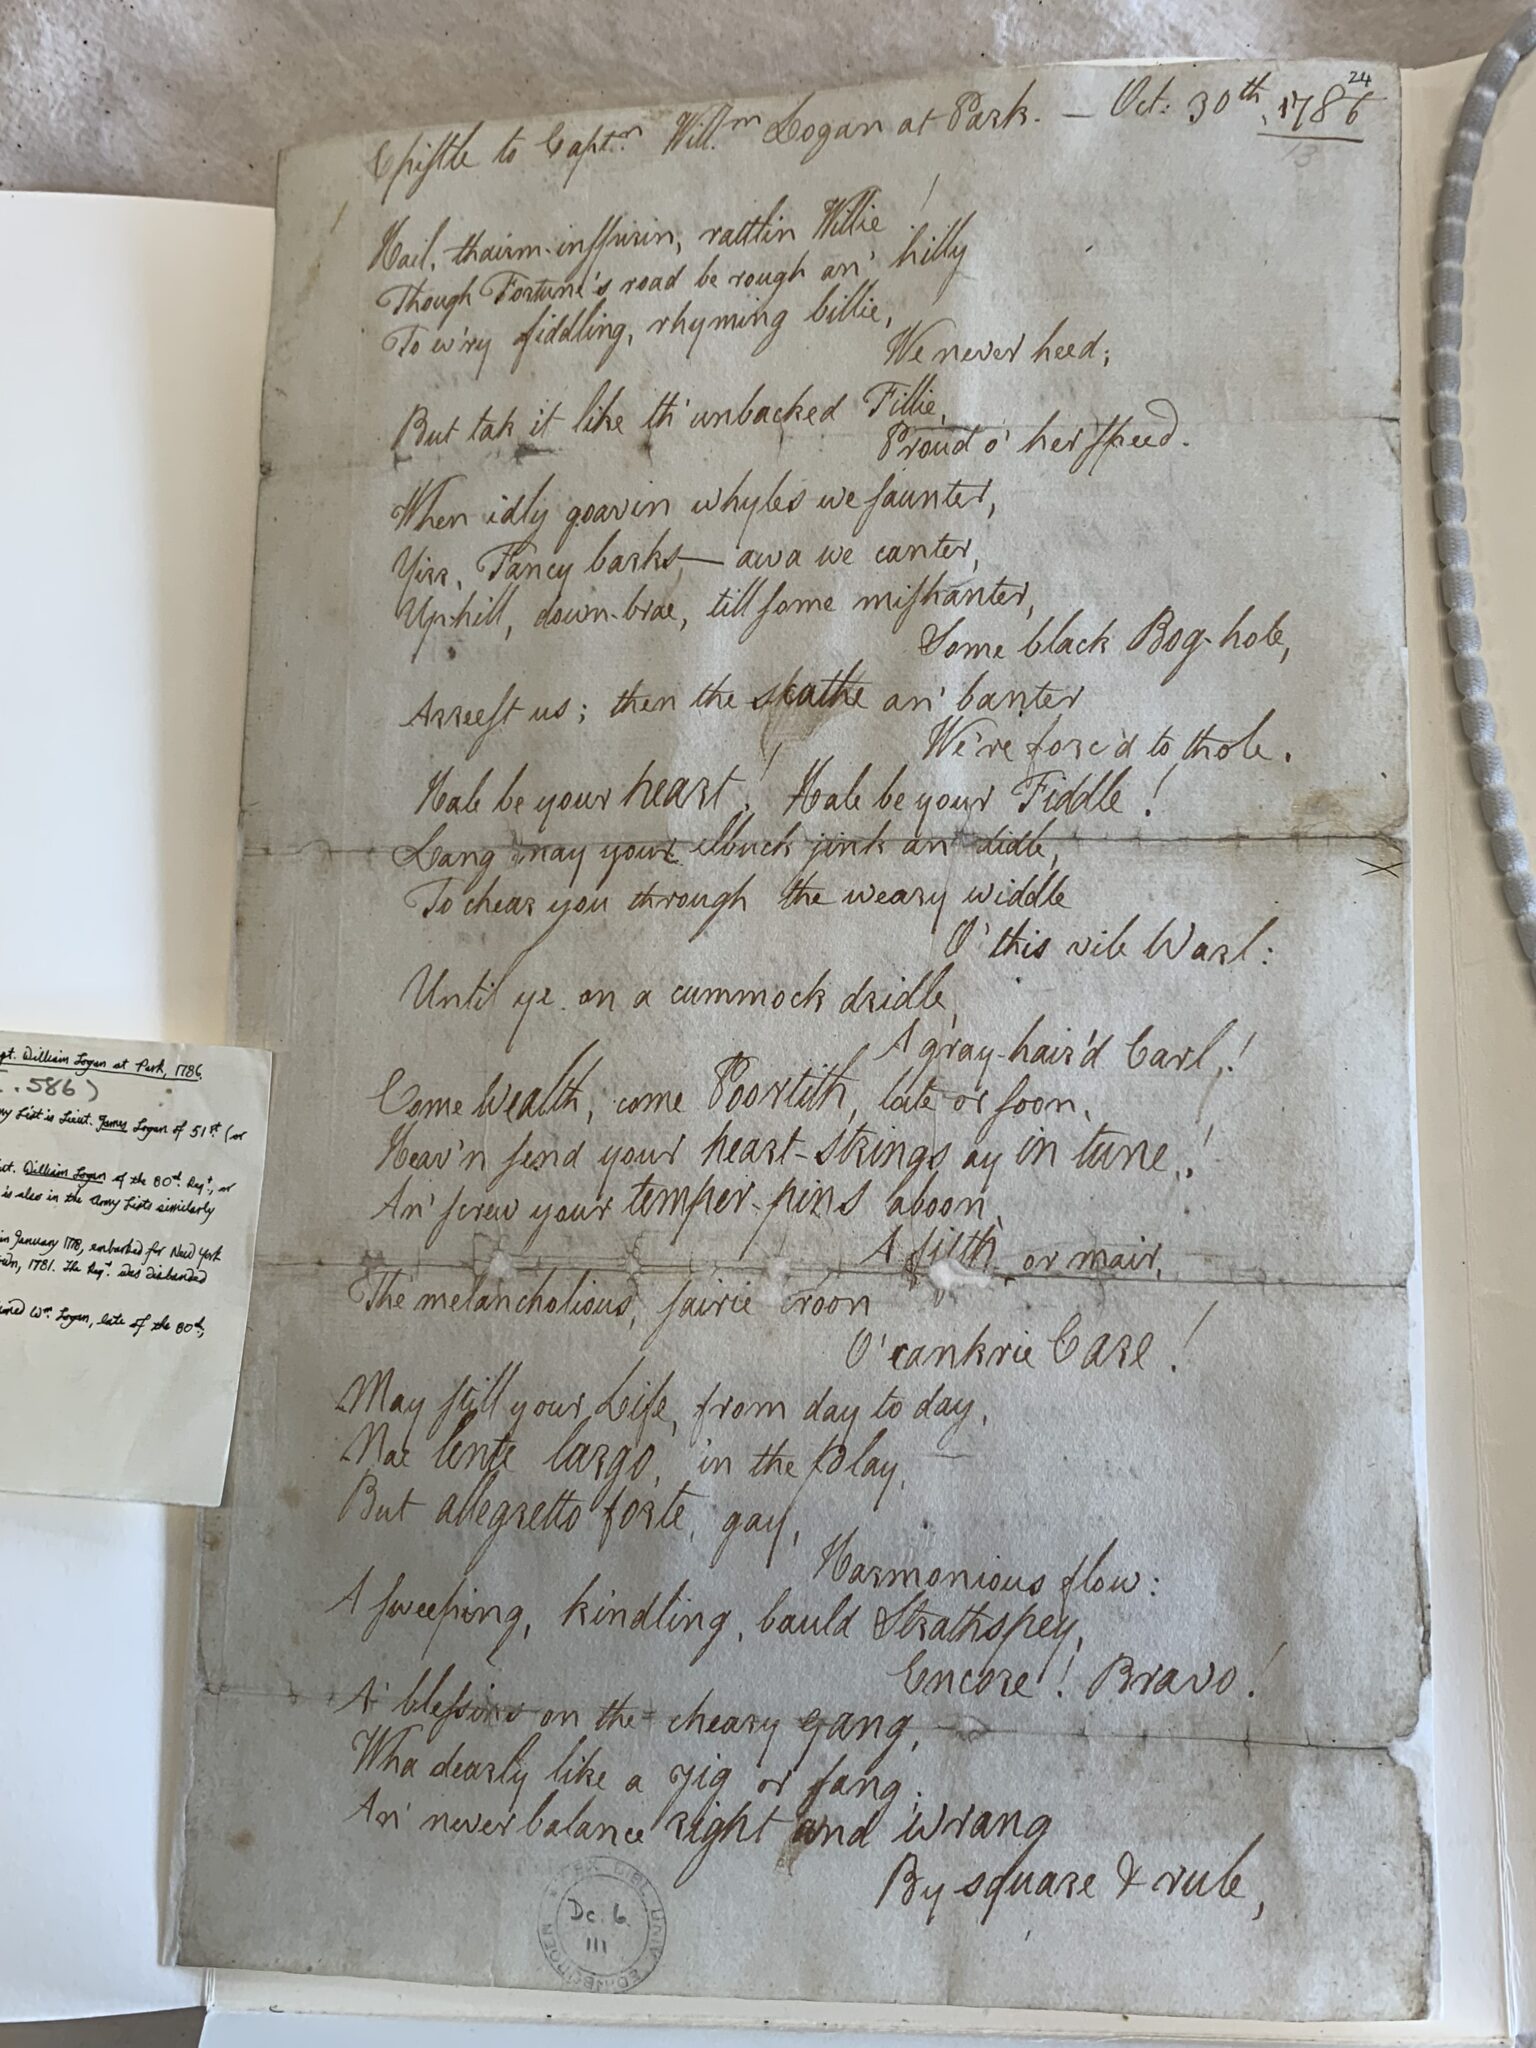 24
Epistle to Captn. Willm. Logan at Park. — Oct: 30th. 1786
13
Hail, thairm-inspirin, rattlin Willie!
Though Fortune's road be rough an' hilly
To ev'ry fiddling, rhyming billie,
We never heed;
But tak it like th' unbacked Fillie,
Proud o' her speed.
When idly goavin whyles we saunter,
Yirr, Fancy barks,— awa we canter,
Up-hill, down-brae, till some mishanter,
Some black Bog-hole,
Arreest us; then the skathe an' banter
We're forc'd to thole.
Hale be your heart! Hale be your Fiddle!
Lang may your elbuck jink an' didle,
To chear you through the weary widdle
O' this vile Warl:
Until ye on a cummock dridle,
A gray-hair'd Carl!
Come Wealth, come Poortith, late or soon,
Heav'n send your heart-strings ay in tune!
An' screw your temper-pins aboon,
A fifth or mair,
The melancholious, sairie croon
O' cankrie Care!
May still your Life, from day to day,
Nae lente largo, in the play,
But allegretto forte, gay,
Harmonious flow:
A sweeping, kindling, bauld Strathspey,
Encore! Bravo!
A' blessins on the cheary gang,
Wha dearly like a Jig or sang;
An' never balance right and wrang
By square & rule,
EX LIB. UNIV. EDINBURGEN
Dc. 6.
111
pt. William Logan at Park, 1786.
.586)
my List is Lieut. James Logan of 51st. (or
William Logan of the 80th. Regt., or
is also in the Army Lists similarly
in January 1778, embarked for New York
1781. The Regt. was disbanded
Wm. Logan, late of the 80th,